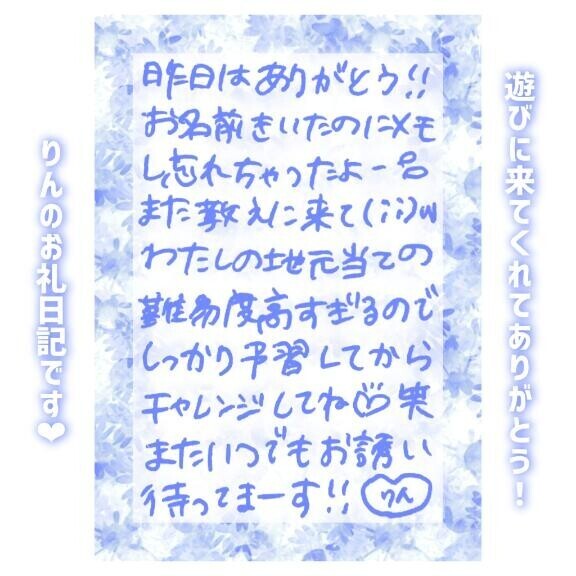 遊びに来てくれてありがとう!
昨日はありがとう!!
お名前きいたのにメモ
し忘れちゃったよー
また教えに来て(;;)w
わたしの地元当ての
難易度高すぎるので
しっかり予習してから
チャレンジしてね♡笑
またいつでもお誘い
待ってまーす!!りん
りんのお礼日記です❤